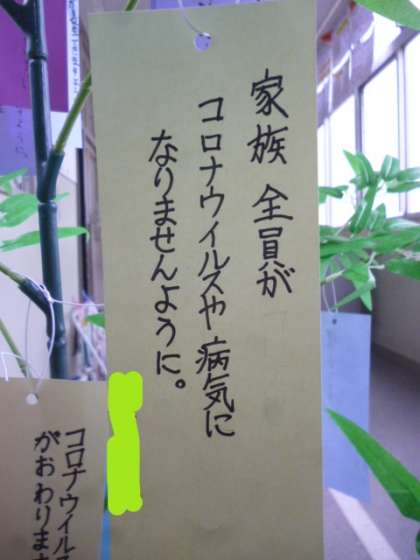 家族 全員が
コロナウイルスや病気に
なりませんように。
コロナウイルス
がおわりま